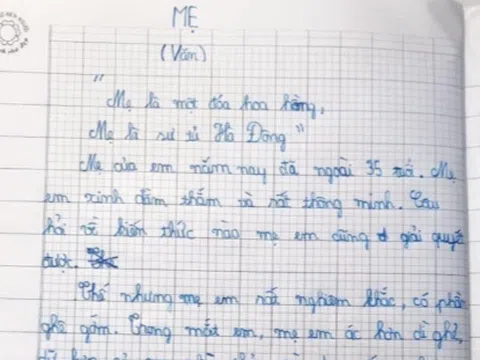 MẸ
(Văn)
"
Mẹ là một đóa hoa hồng,
Mẹ là sư tử Hà Đông"
Mẹ của em năm nay đã ngoài 35 tuổi. Mẹ
em xinh đằm thắm và rất thông minh. Câu
hỏi về kiến thức nào mẹ em cũng giải quyết
được.
Thế nhưng mẹ em rất nghiêm khắc, có phần
ghê gớm. Trong mắt em, mẹ em ác hơn dì ghẻ,